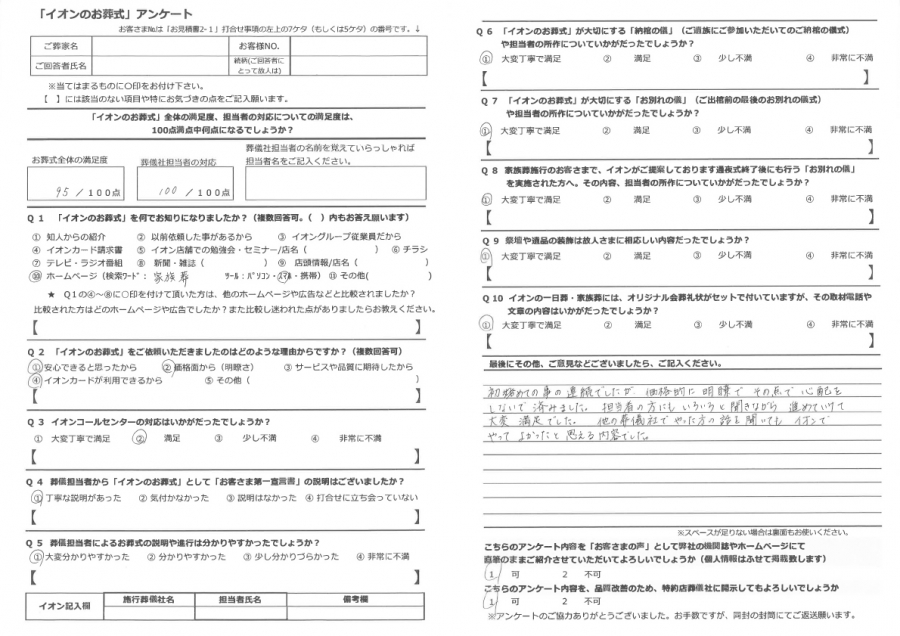 「イオンのお葬式」アンケート
お客さま№は「お見積書2-1」打合せ事項の左上の7ケタ（もしくは5ケタ）の番号です。↓
ご葬家名 お客様NO.
ご回答者氏名 続柄(ご回答者にとって故人は)
※当てはまるものに〇印をお付け下さい。
【 】には該当のない項目や特にお気づきの点をご記入願います。
「イオンのお葬式」全体の満足度、担当者の対応についての満足度は、
100点満点中何点になるでしょうか？
お葬式全体の満足度 葬儀社担当者の対応 葬儀社担当者の名前を覚えていらっしゃれば
担当者名をご記入ください。
95 / 100点 100 / 100点
Q 1 「イオンのお葬式」を何でお知りになりましたか？（複数回答可。（ ）内もお答え願います）
① 知人からの紹介 ② 以前依頼した事があるから ③ イオングループ従業員だから
④ イオンカード請求書 ⑤ イオン店舗での勉強会・セミナー/店名（ ）⑥ チラシ
⑦ テレビ・ラジオ番組 ⑧ 新聞・雑誌（ ） ⑨ 店頭情報/店名（ ）
⑩ ホームページ（検索ﾜｰﾄﾞ： 家族葬 ﾂｰﾙ：パソコン・ｽﾏﾎ・携帯）⑪ その他( )
★ Q1の④～⑧に〇印を付けて頂いた方は、他のホームページや広告などと比較されましたか？
比較された方はどのホームページや広告でしたか？また比較し迷われた点がありましたらお教えください。
【 】
Q 2 「イオンのお葬式」をご依頼いただきましたのはどのような理由からですか？（複数回答可）
①安心できると思ったから ②価格面から（明瞭さ） ③ サービスや品質に期待したから
④イオンカードが利用できるから ⑤ その他（ ）
【 】
Q 3 イオンコールセンターの対応はいかがだったでしょうか？
① 大変丁寧で満足 ② 満足 ③ 少し不満 ④ 非常に不満
【 】
Q 4 葬儀担当者から「イオンのお葬式」として「お客さま第一宣言書」の説明はございましたか？
①丁寧な説明があった ② 気付かなかった ③ 説明はなかった ④ 打合せに立ち会っていない
【 】
Q 5 葬儀担当者によるお葬式の説明や進行は分かりやすかったでしょうか？
①大変分かりやすかった ② 分かりやすかった ③ 少し分かりづらかった ④ 非常に不満
【 】
イオン記入欄 施行葬儀社名 担当者氏名 備考欄
Q 6 「イオンのお葬式」が大切にする「納棺の儀」（ご遺族にご参加いただいてのご納棺の儀式）
や担当者の所作についていかがだったでしょうか？
① 大変丁寧で満足 ② 満足 ③ 少し不満 ④ 非常に不満
【 】
Q 7 「イオンのお葬式」が大切にする「お別れの儀」（ご出棺前の最後のお別れの儀式）
や担当者の所作についていかがだったでしょうか？
① 大変丁寧で満足 ② 満足 ③ 少し不満 ④ 非常に不満
【 】
Q 8 家族葬施行のお客さまで、イオンがご提案しております通夜式終了後にも行う「お別れの儀」
を実施された方へ。その内容、担当者の所作についていかがだったでしょうか？
① 大変丁寧で満足 ② 満足 ③ 少し不満 ④ 非常に不満
【 】
Q 9 祭壇や遺品の装飾は故人さまに相応しい内容だったでしょうか？
① 大変丁寧で満足 ② 満足 ③ 少し不満 ④ 非常に不満
【 】
Q 10 イオンの一日葬・家族葬には、オリジナル会葬礼状がセットで付いていますが、その取材電話や
文章の内容はいかがだったでしょうか？
① 大変丁寧で満足 ② 満足 ③ 少し不満 ④ 非常に不満
【 】
最後にその他、ご意見などございましたら、ご記入ください。
初めての事の連続でしたが 価格的に明瞭で その点で心配を
しないで済みました。 担当者の方にもいろいろと聞きながら 進めていけて
大変満足でした。 他の葬儀社でやった方の話を聞いても イオンで
やって よかったと思える内容でした。
※スペースが足りない場合は裏面もお使いください。
こちらのアンケート内容を「お客さまの声」として弊社の機関誌やホームページにて
直筆のままご紹介させていただいてよろしいでしょうか（個人情報はふせて掲載致します）
1 可 2 不可
こちらのアンケート内容を、品質改善のため、特約店葬儀社に開示してもよろしいでしょうか
1 可 2 不可
※アンケートのご協力ありがとうございました。お手数ですが、同封の封筒にてご返送願います。